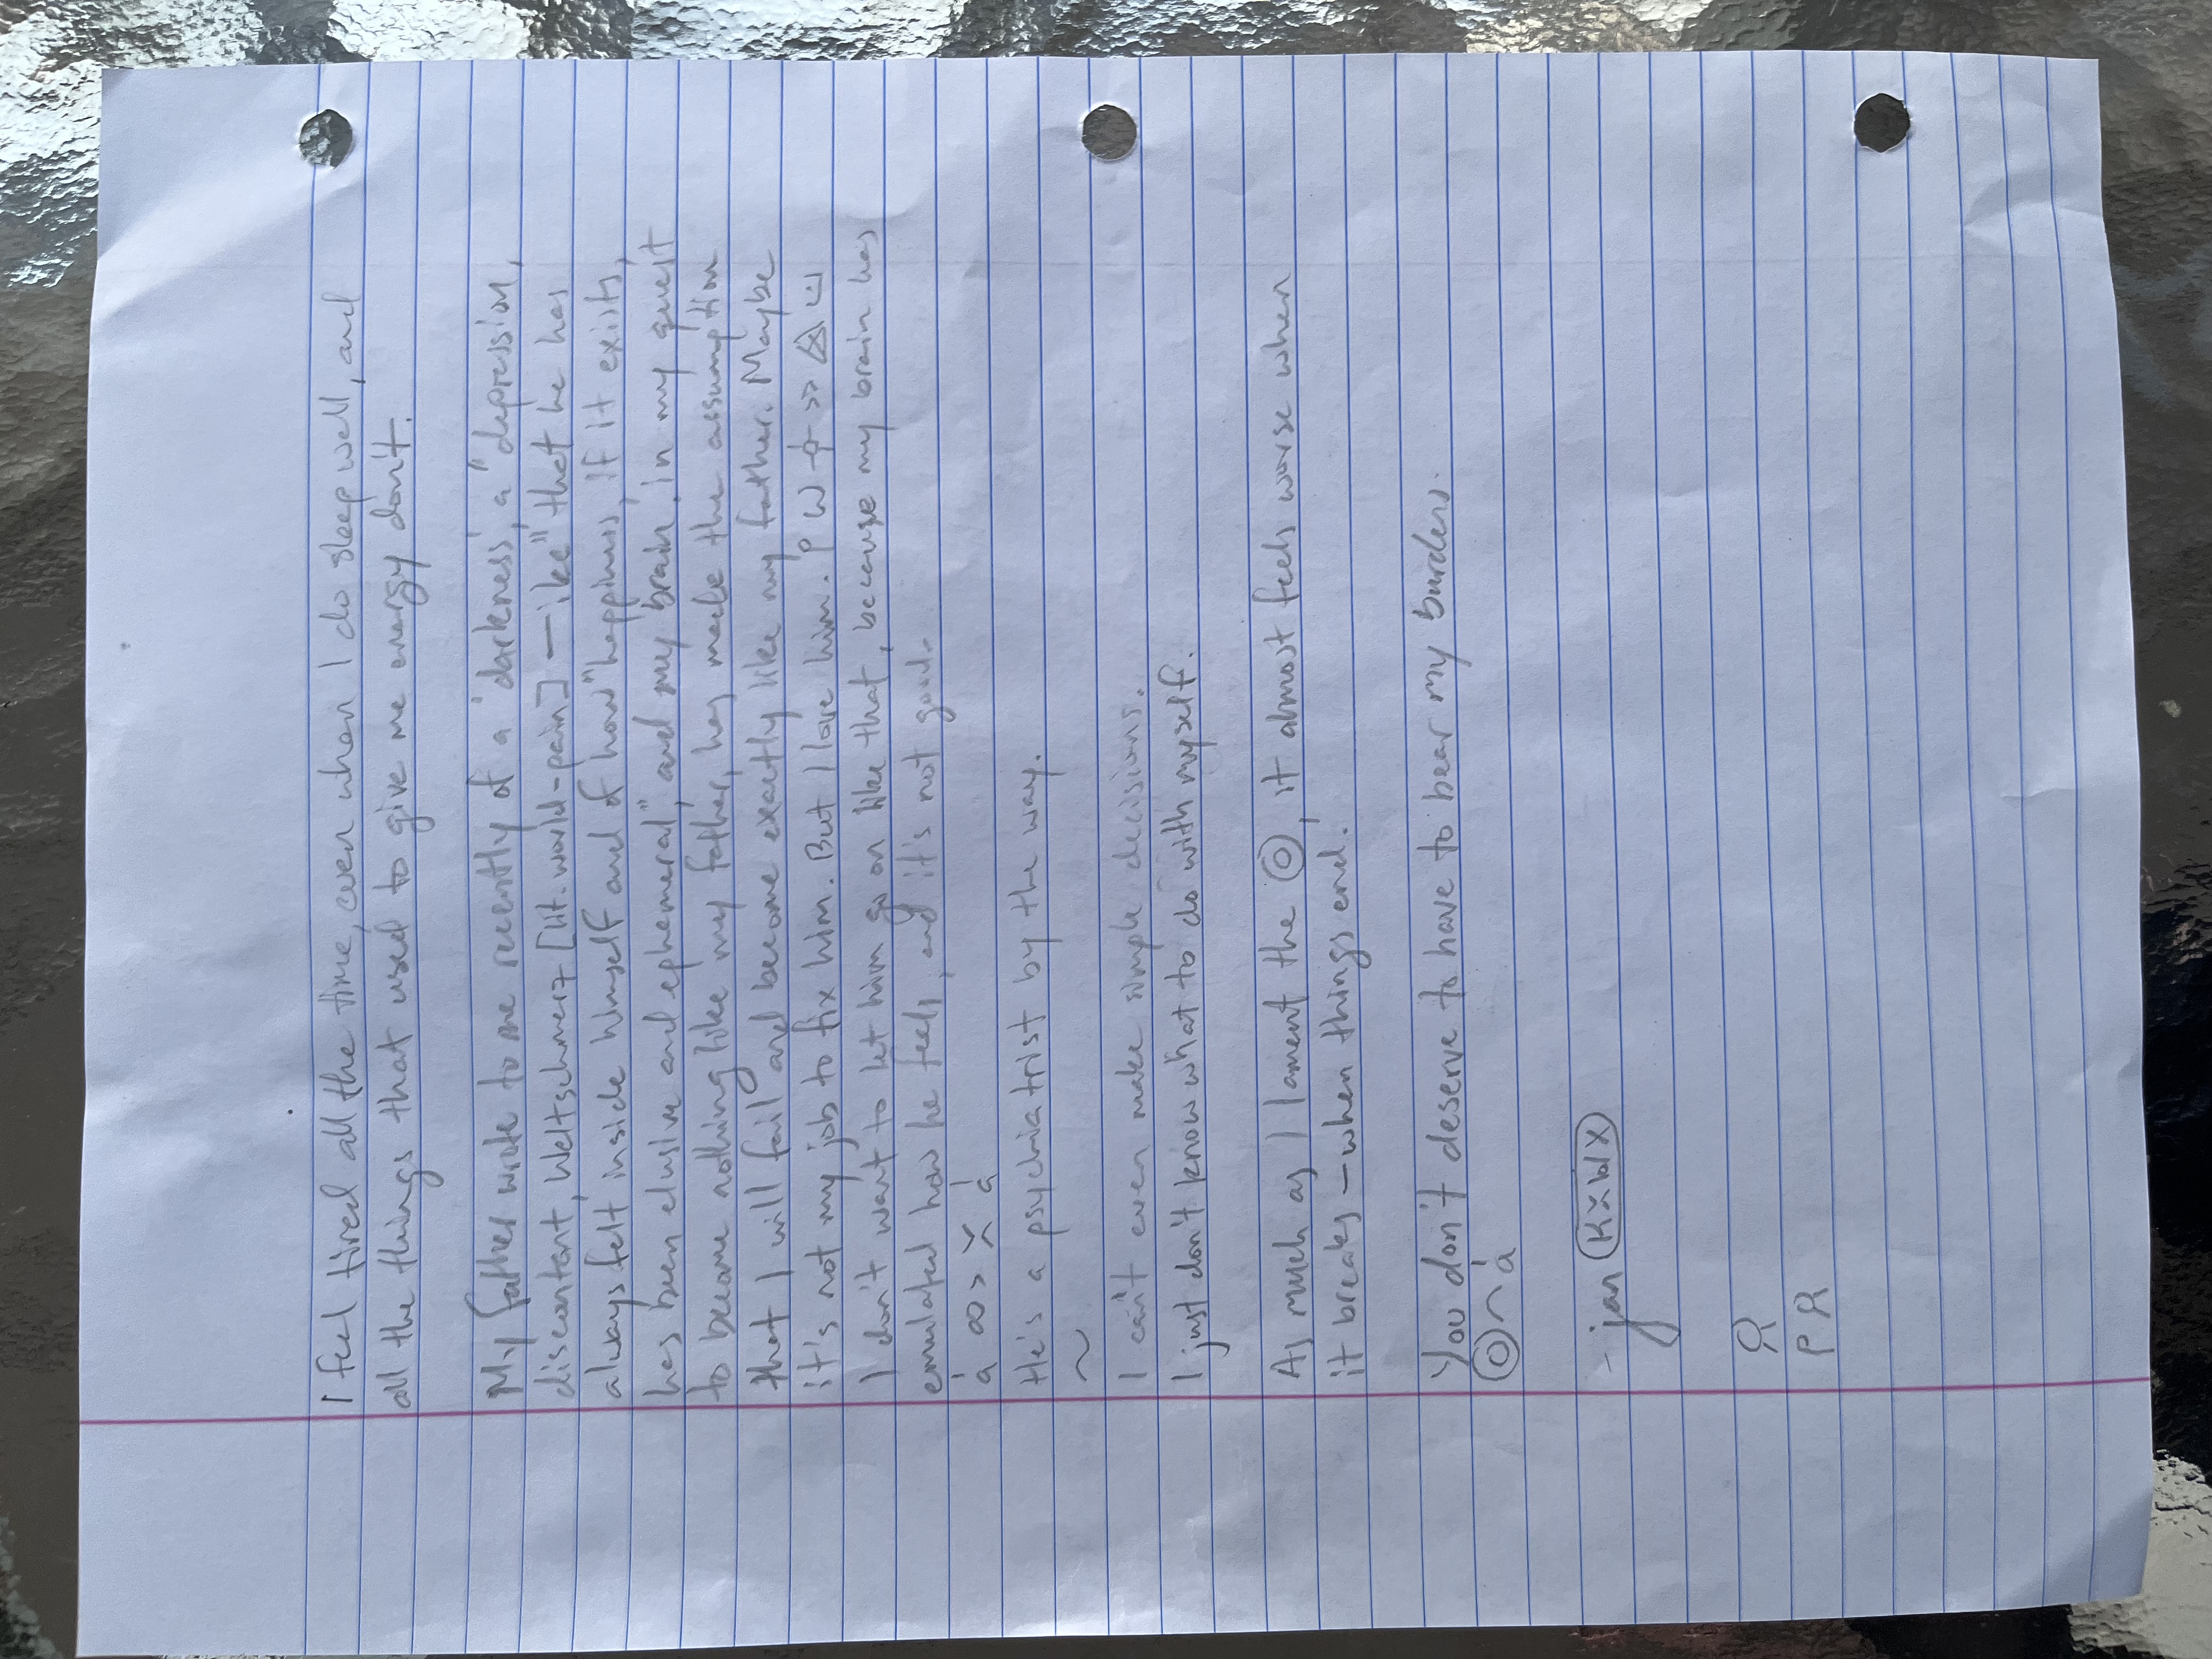 I feel tired all the time, even when I do sleep well, and
all the things that used to give me energy don't.
My father wrote to me recently of a "darkness", a "depression,
discontent, Weltschmerz [lit. world-pain] — ike" that he has
always felt inside himself and of how "happiness, if it exists,
has been elusive and ephemeral", and my brain, in my quest
to become nothing like my father, has made the assumption
that I will fail and become exactly like my father. Maybe
it's not my job to fix him. But I love him.
I don't want to let him go on like that, because my brain has
emulated how he feels, and it's not good.
He's a psychiatrist by the way.
~
I can't even make simple decisions.
I just don't know what to do with myself.
As much as I lament the , it almost feels worse when
it breaks — when things end.
You don't deserve to have to bear my burdens.
- jan